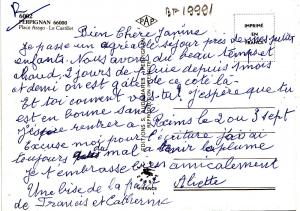 6082
PERPIGNAN 66000
Place Arago - Le Castillet
PAP
IMPRIMÉ
EN
FRANCE
Bien Chère Janine
Je passe un agréable séjour près de mes petits
enfants. Nous avons du beau temps et
chaud, 2 jours de pluie depuis 1 mois
et demi on est gâtés de ce côté là
Et toi comment vas tu? J'espère que tu
est en bonne santé
J'espère rentrer à Reims le 2 ou 3 sept
Excuse moi pour l'écriture j'ai
toujours mal tenir la plume
Je t'embrasse bien amicalement
Une bise de la part Aliette
de Francis et Catherine